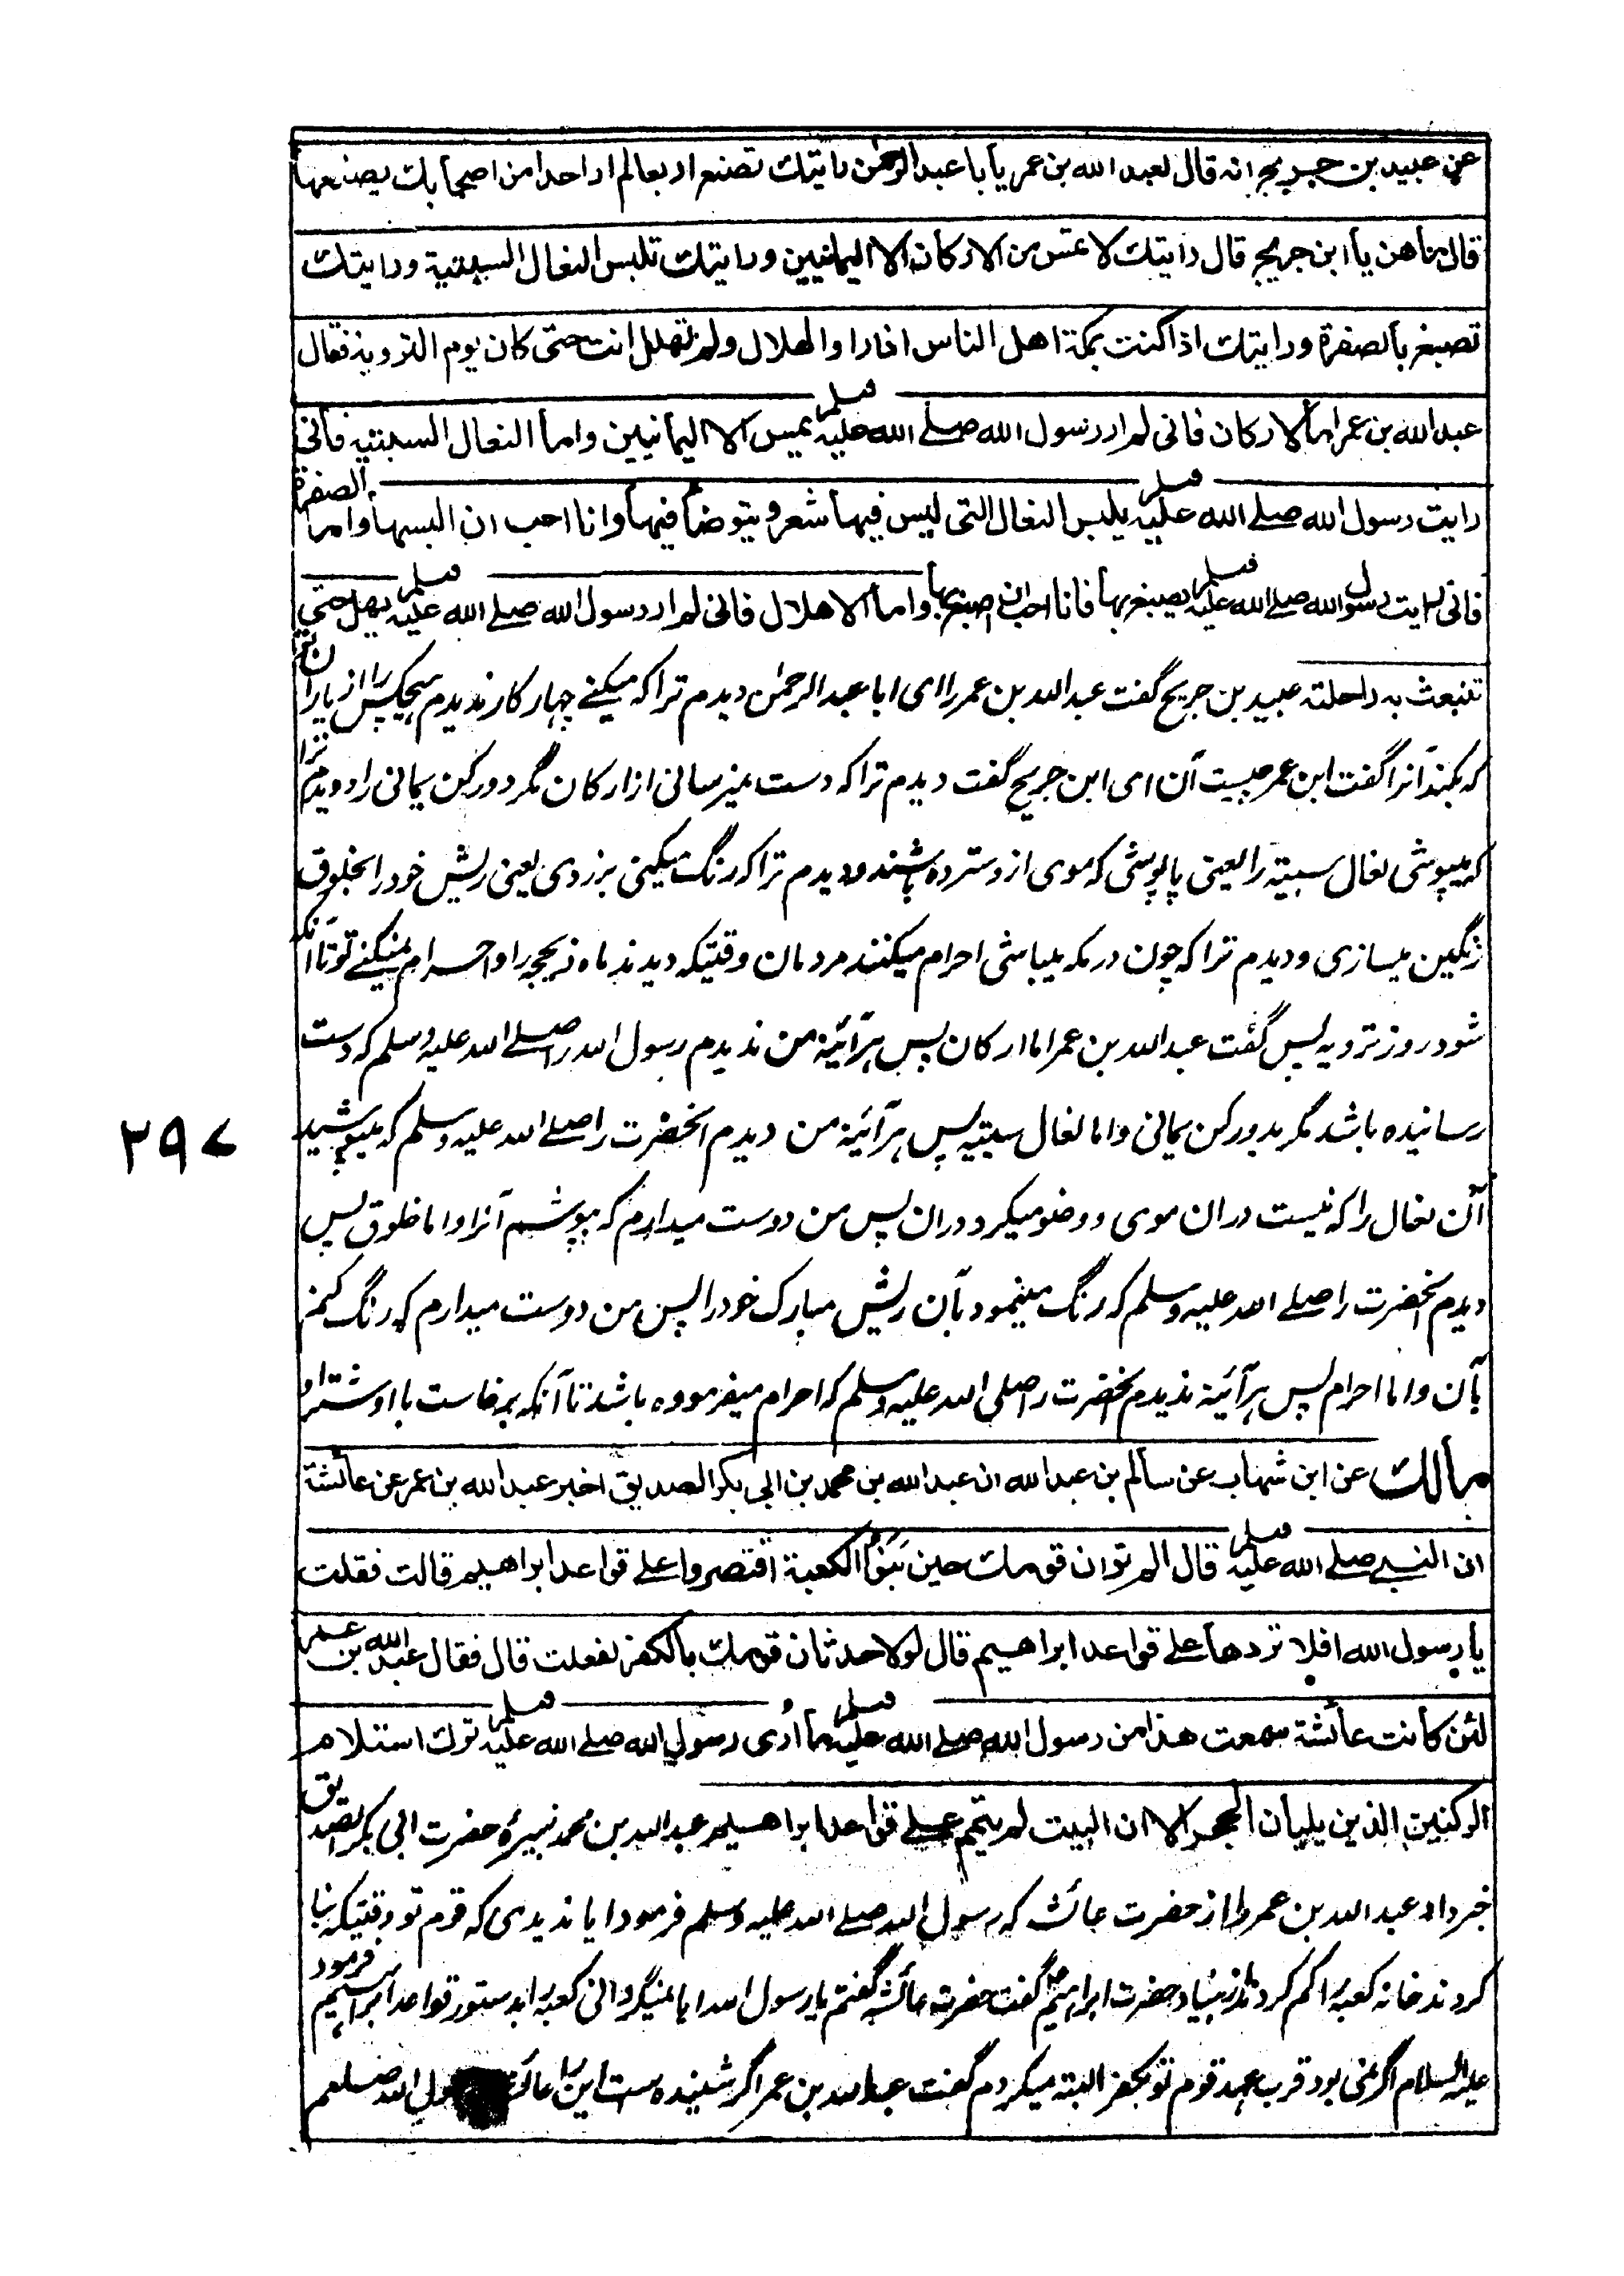 عن عبيد بن جريج انه قال لعبد الله بن عمر يا أبا عبد الرحمن رايتك تصنع اربعا لم ار احدا من اصحابك يصنعها
قال ما هن يا ابن جريج قال رايتك لا تمس من الاركان الا اليمانيين ورايتك تلبس النعال السبتية ورايتك
تصبغ بالصفرة ورايتك اذا كنت بمكة اهل الناس اذا راوا الهلال ولم تهلل انت حتى كان يوم التروية فقال
عبد الله بن عمر اما الاركان فانى لم ار رسول الله صلے الله عليه وسلم يمس الا اليمانيين واما النعال السبتيه فانى
رايت رسول الله صلے الله عليه وسلم يلبس النعال التى ليس فيها شعر ويتوضأ فيها وانا احب ان البسها واما الصفرة
فانى رايت رسول الله صلے الله عليه وسلم يصبغ بها فانا احب ان اصبغ بها واما الاهلال فانى لم ار رسول الله صلے الله عليه وسلم يهل حتى
تنبعث به راحلته عبيد بن جريج گفت عبد الله بن عمر را ای ابا عبد الرحمٰن ديدم ترا كه ميكنے چہار كار نديدم ہیچکس را از یاران تو
که بکند آنرا گفت ابن عمر چیست آن ای ابن جریج گفت دیدم ترا که دست نمیرسانی از ارکان مگر دو رکن یمانی را و دیدم ترا
که میپوشی نعال سبتیه را یعنی پاپوشی که موی ازو سترده باشند و دیدم ترا که رنگ میکنی بزردی یعنی ریش خود را بخلوق
رنگین میسازی و دیدم ترا که چون در مکه میباشی احرام میکنند مردمان وقتیکه دیدند ماه ذیحجه را و احرام نمیکنے تو تا آنکه
شود روز ترویه پس گفت عبد الله بن عمر اما ارکان پس ہرآئینه من ندیدم رسول الله را صلے الله علیه وسلم که دست
رسانیده باشد مگر بدو رکن یمانی و اما نعال سبتیه پس ہرآئینه من دیدم آنحضرت را صلے الله علیه وسلم که میپوشید
آن نعال را که نیست دران موی و وضو میکرد دران پس من دوست میدارم که بپوشم آنرا و اما خلوق پس
دیدم آنحضرت را صلے الله علیه وسلم که رنگ مینمود بآن ریش مبارک خود را پس من دوست میدارم که رنگ کنم
بآن و اما احرام پس ہرآئینه ندیدم آنحضرت را صلی الله علیه وسلم که احرام میفرموده باشد تا آنکه برخاست با او شتر او
مالك عن ابن شهاب عن سالم بن عبد الله ان عبد الله بن محمد بن ابى بكر الصديق اخبر عبد الله بن عمر عن عائشة
ان النبى صلے الله عليه وسلم قال الم تر ان قومك حين بَنَوُا الكعبة اقتصروا على قواعد ابراهيم قالت فقلت
يا رسول الله افلا تردها على قواعد ابراهيم قال لولا حدثان قومك بالكفر لفعلت قال فقال عبد الله بن عمر
لئن كانت عائشة سمعت هذا من رسول الله صلے الله عليه وسلم ما اُرى رسول الله صلے الله عليه وسلم ترك استلام
الركنين الذين يليان الحجر الا ان البيت لم يتم على قواعد ابراهيم عبد الله بن محمد نبیرهٔ حضرت ابی بکر الصدیق
خبر داد عبد الله بن عمر را از حضرت عائشه که رسول الله صلے الله علیه وسلم فرمود آیا ندیدی که قوم تو وقتیکه بنا
کردند خانه کعبه را کم کردند از بنیاد حضرت ابراہیم گفت حضرت عائشه گفتم یا رسول الله آیا نمیگردانی کعبه را بدستور قواعد ابراہیم فرمود
علیه السلام اگر نمی بود قرب عہد قوم تو بکفر البته میکردم گفت عبد الله بن عمر اگر شنیده ست این را عائشه رسول الله صلعم
۲۹۷